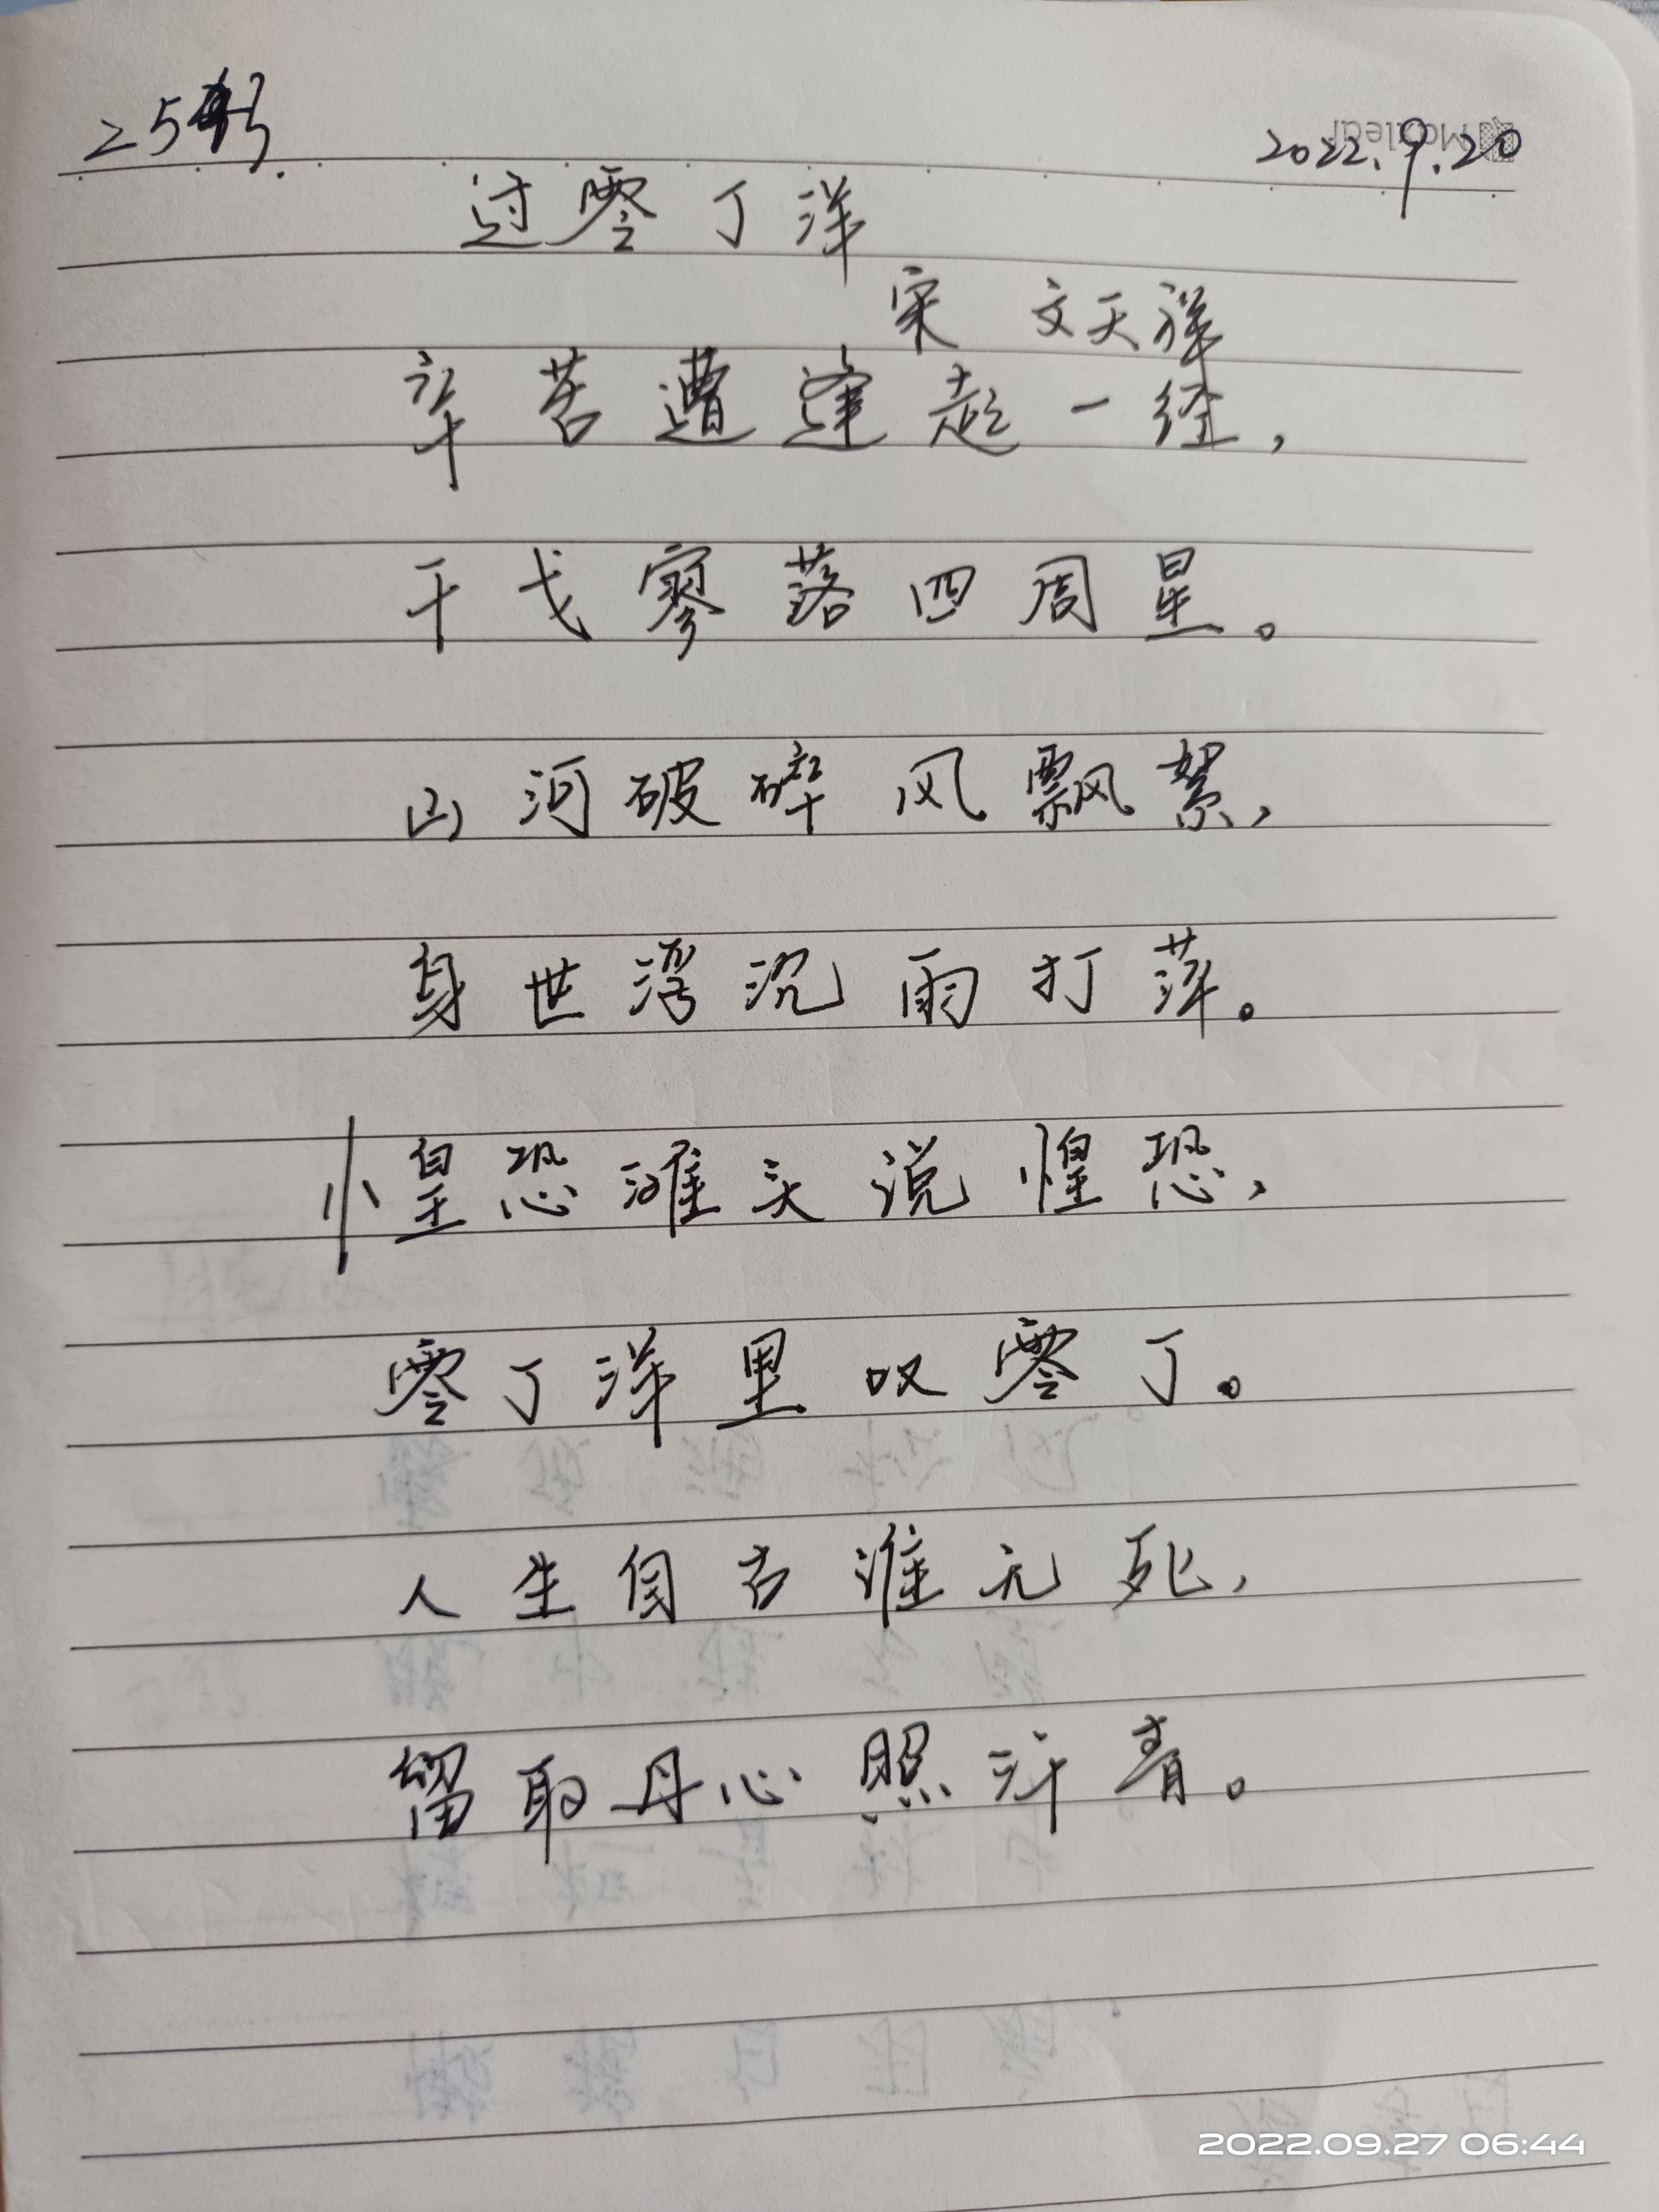 25 2022.9.20
过零丁洋
宋 文天祥
辛苦遭逢起一经，
干戈寥落四周星。
山河破碎风飘絮，
身世浮沉雨打萍。
惶恐滩头说惶恐，
零丁洋里叹零丁。
人生自古谁无死，
留取丹心照汗青。
2022.09.27 06:44